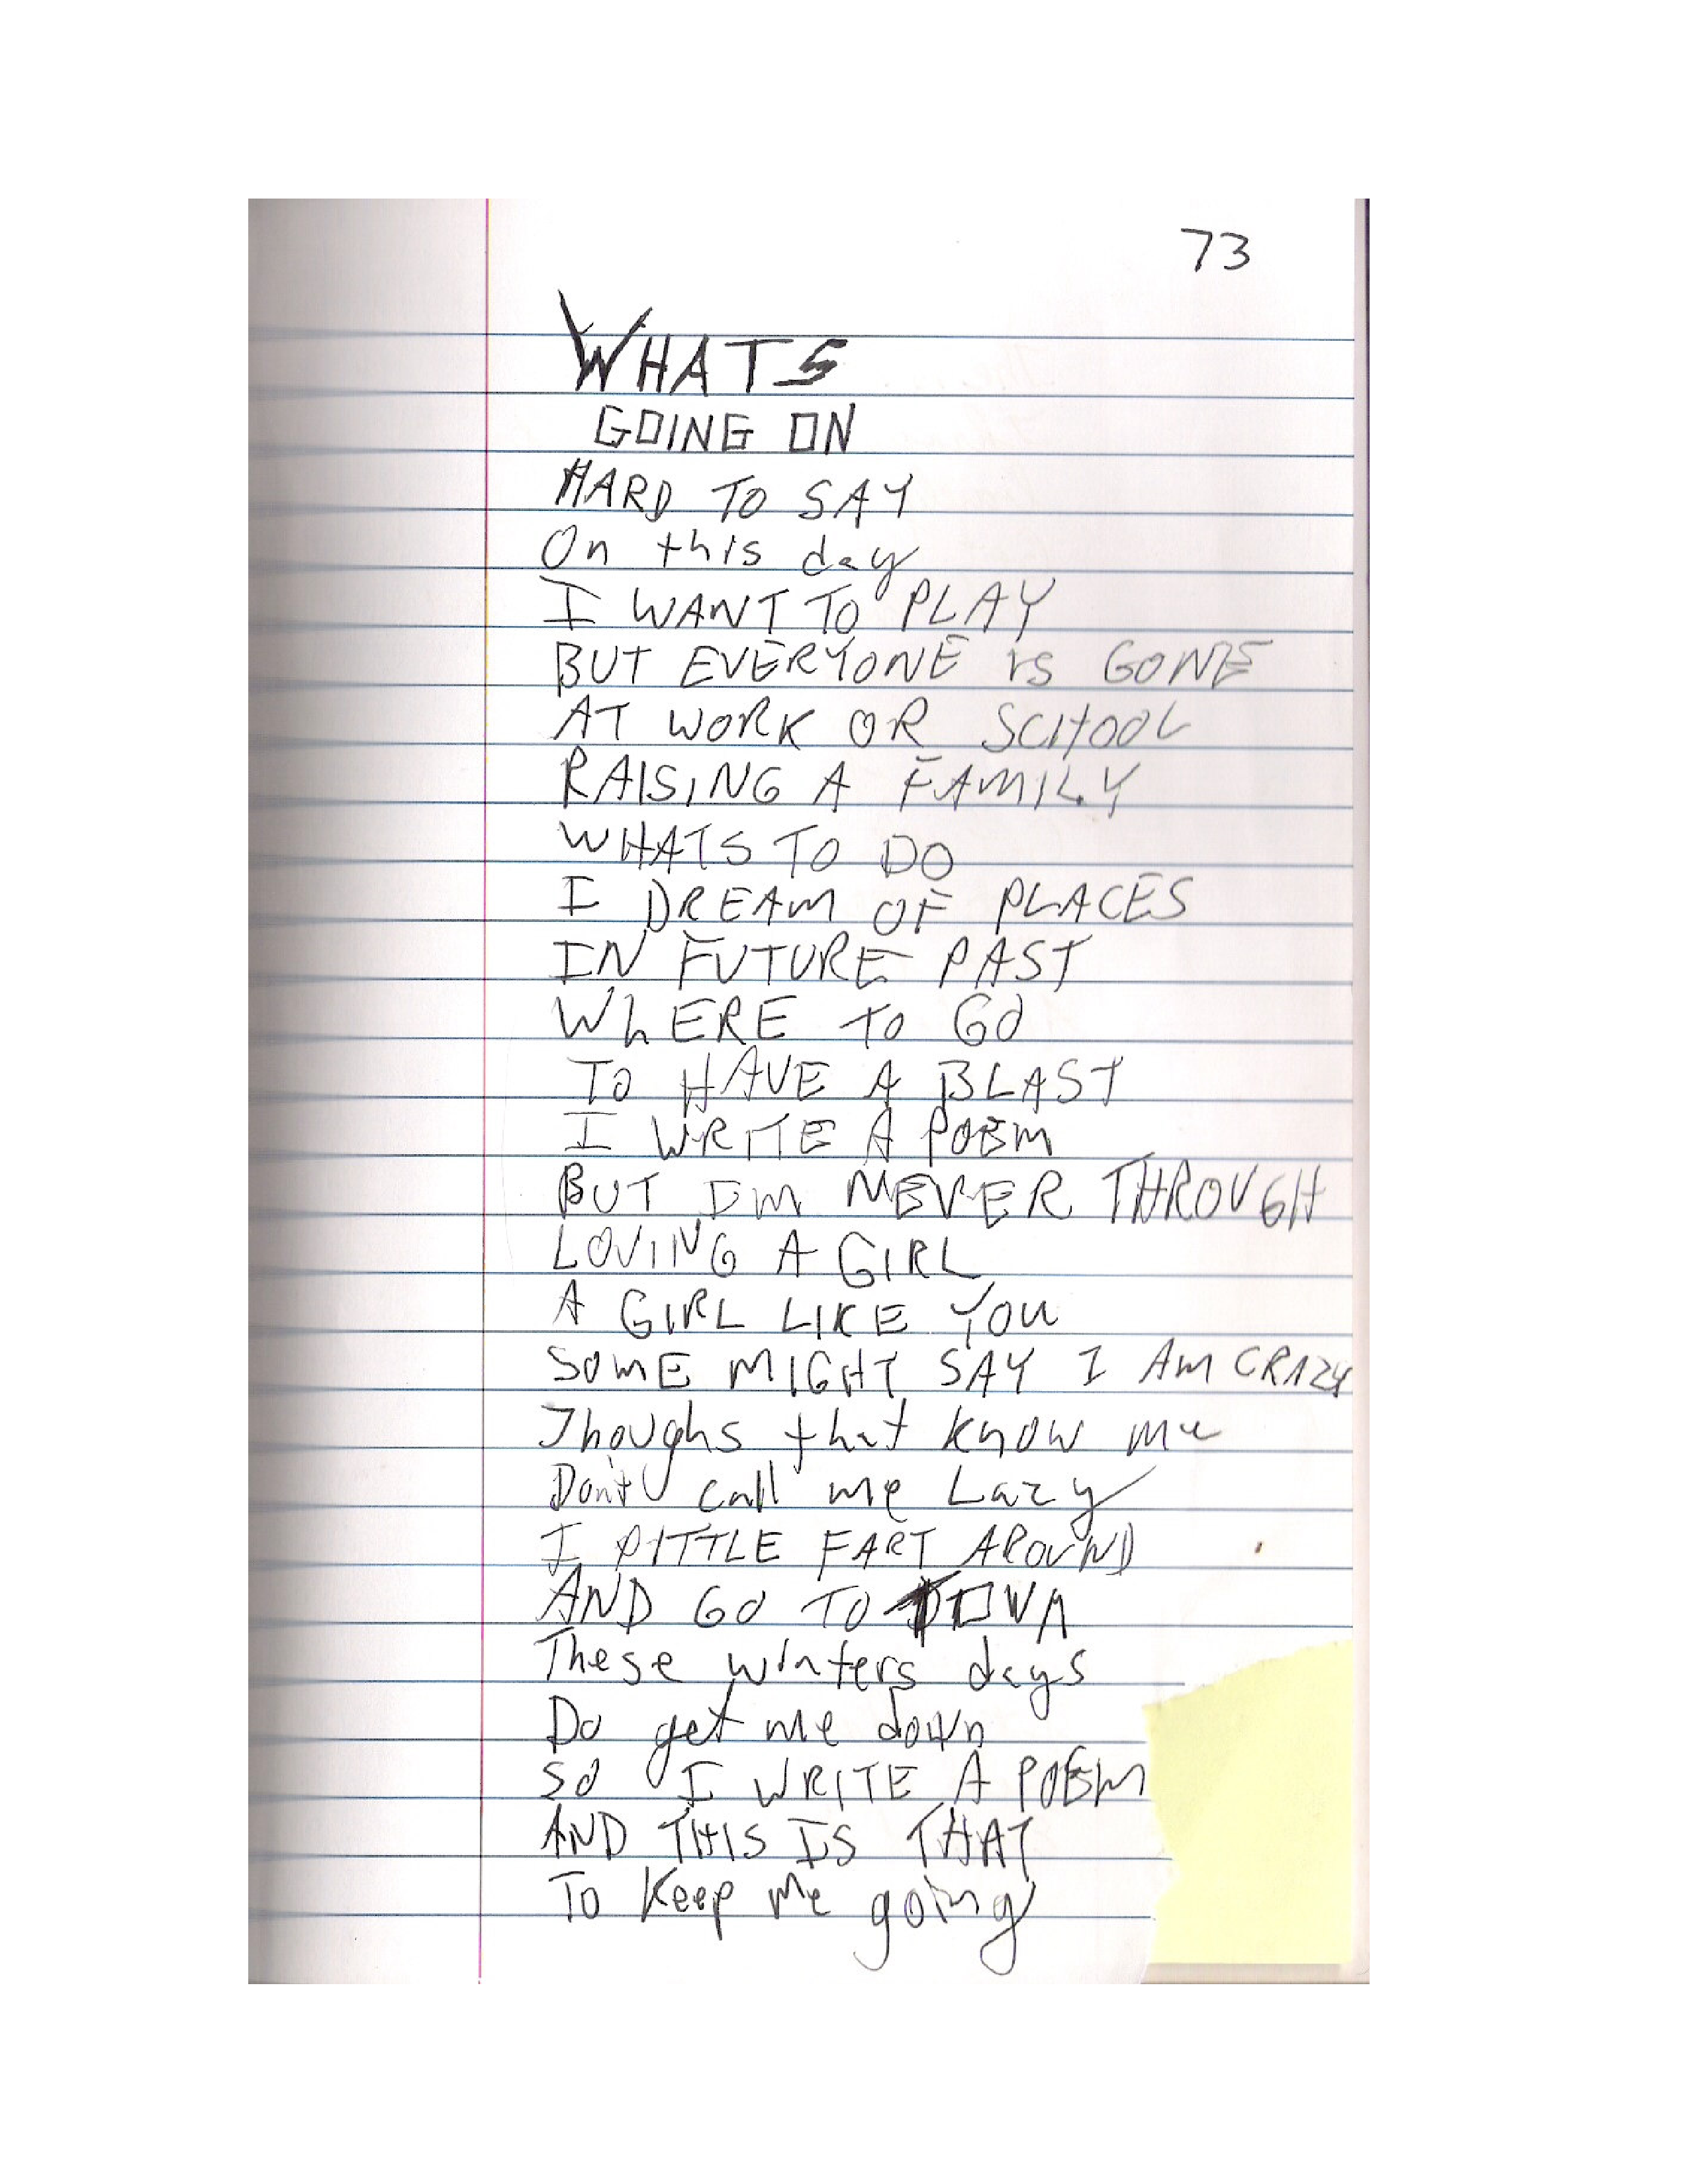 73
WHATS
GOING ON
HARD TO SAY
On this day
I WANT TO PLAY
BUT EVERYONE IS GONE
AT WORK OR SCHOOL
RAISING A FAMILY
WHATS TO DO
I DREAM OF PLACES
IN FUTURE PAST
WhERE TO GO
TO HAVE A BLAST
I WRITE A POEM
BUT I'M NEVER THROUGH
LOVING A GIRL
A GIRL LIKE YOU
SOME MIGHT SAY I AM CRAZY
Thoughs that know me
Don't call me Lazy
I PITTLE FART AROUND
AND GO TO TOWN
These winters days
Do get me down
SO I WRITE A POEM
AND THIS IS THAT
To Keep me going